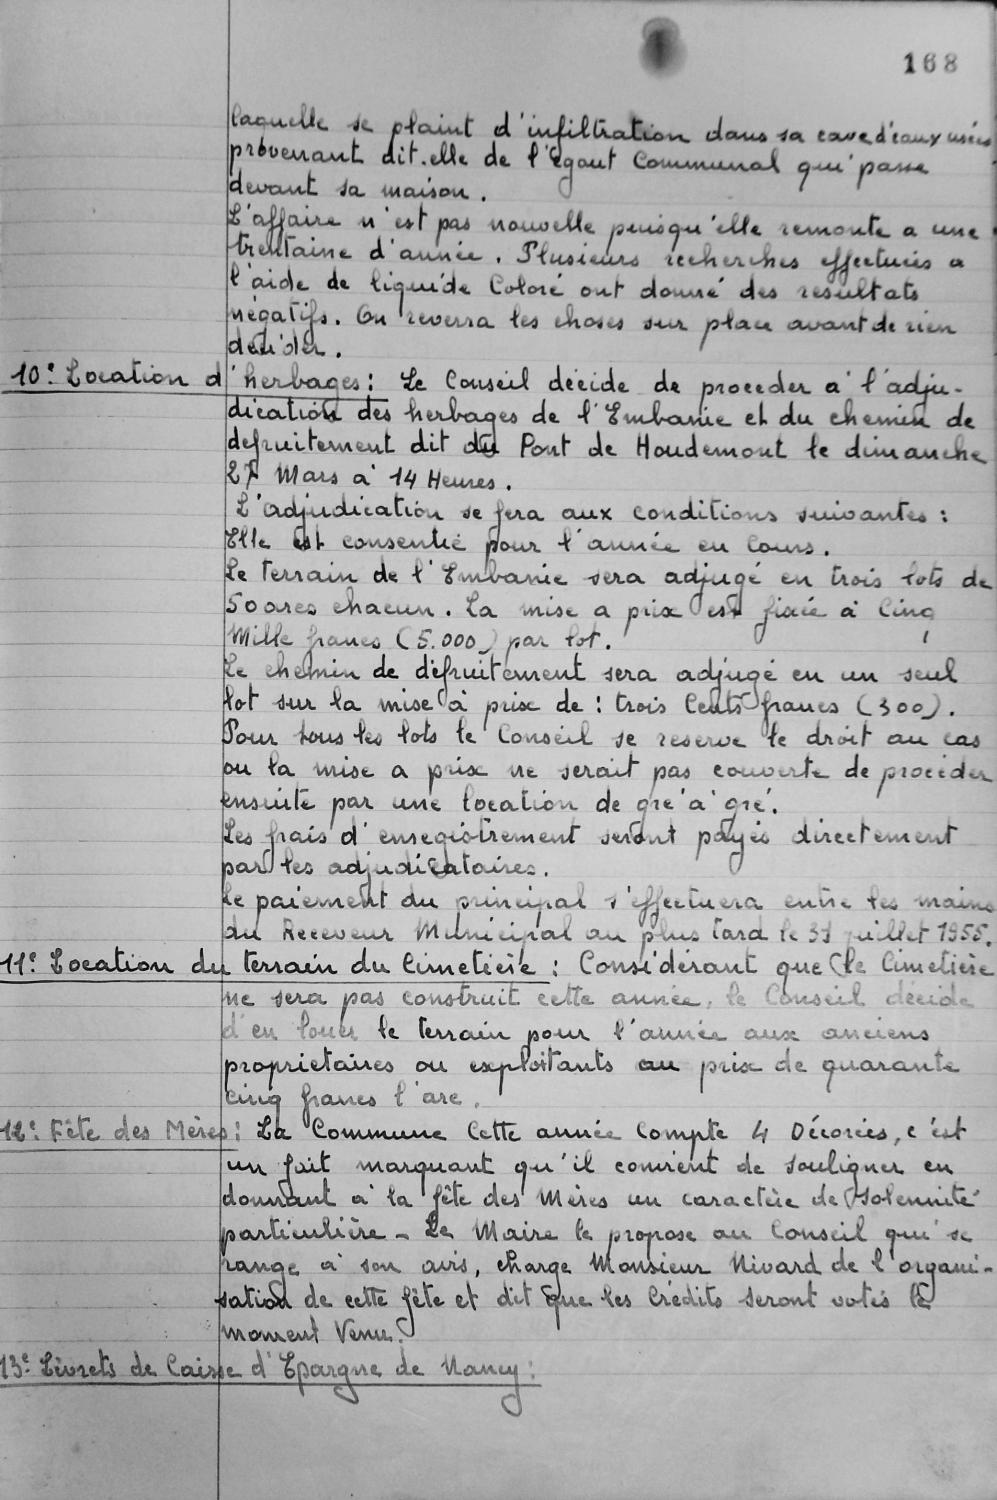 168
laquelle se plaint d'infiltration dans sa cave d'eaux usées
provenant dit-elle de l'égout Communal qui passe
devant sa maison.
L'affaire n'est pas nouvelle puisqu'elle remonte a une
trentaine d'année. Plusieurs recherches effectuées a
l'aide de liquide Coloré ont donné des resultats
négatifs. On reverra les choses sur place avant de rien
décider.
10° Location d'herbages: Le Conseil décide de proceder a l'adju-
dication des herbages de l'Embanie et du chemin de
defruitement dit du Pont de Houdemont le dimanche
27 Mars à 14 Heures.
L'adjudication se fera aux conditions suivantes:
Elle est consentie pour l'année en Cours.
Le terrain de l'Embanie sera adjugé en trois lots de
50 ares chacun. La mise a prix est fixée à Cinq
Mille francs (5.000) par lot.
Le chemin de défruitement sera adjugé en un seul
lot sur la mise à prix de: trois Cents francs (300).
Pour tous les lots le Conseil se reserve le droit au cas
ou la mise a prix ne serait pas couverte de procéder
ensuite par une location de gré à gré.
Les frais d'enregistrement seront payés directement
par les adjudicataires.
Le paiement du principal s'effectuera entre les mains
du Receveur Municipal au plus tard le 31 juillet 1955.
11° Location du terrain du Cimetière: Considérant que le Cimetière
ne sera pas construit cette année, le Conseil décide
d'en louer le terrain pour l'année aux anciens
proprietaires ou exploitants au prix de quarante
cinq francs l'are.
12° Fête des Mères: La Commune Cette année Compte 4 Décorées, c'est
un fait marquant qu'il convient de souligner en
donnant à la fête des Mères un caractère de solennité
particulière - Le Maire le propose au Conseil qui se
range à son avis, charge Monsieur Nivard de l'organi-
sation de cette fête et dit que les Crédits seront votés le
moment Venu.
13° Livrets de Caisse d'Epargne de Nancy: